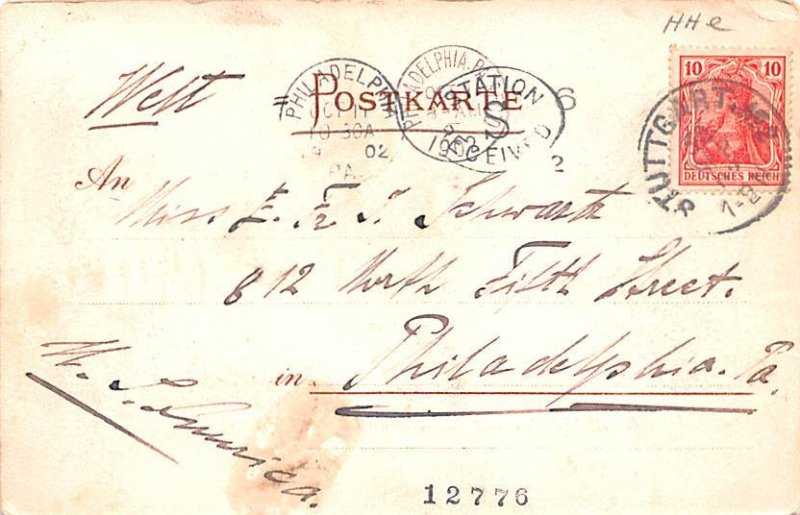 HHe
10 10
DEUTSCHES REICH
STUTTGART
7-8
PHILADELPHIA
OCT 11
10 30A
02
PA.
PHILADELPHIA, PA
STATION
S
1902
RECEIVED
6
2
Welt = POSTKARTE
An
Miss E. F. Schwartz
812 North Fifth Street.
in Philadelphia. Pa.
U. S. America.
12776